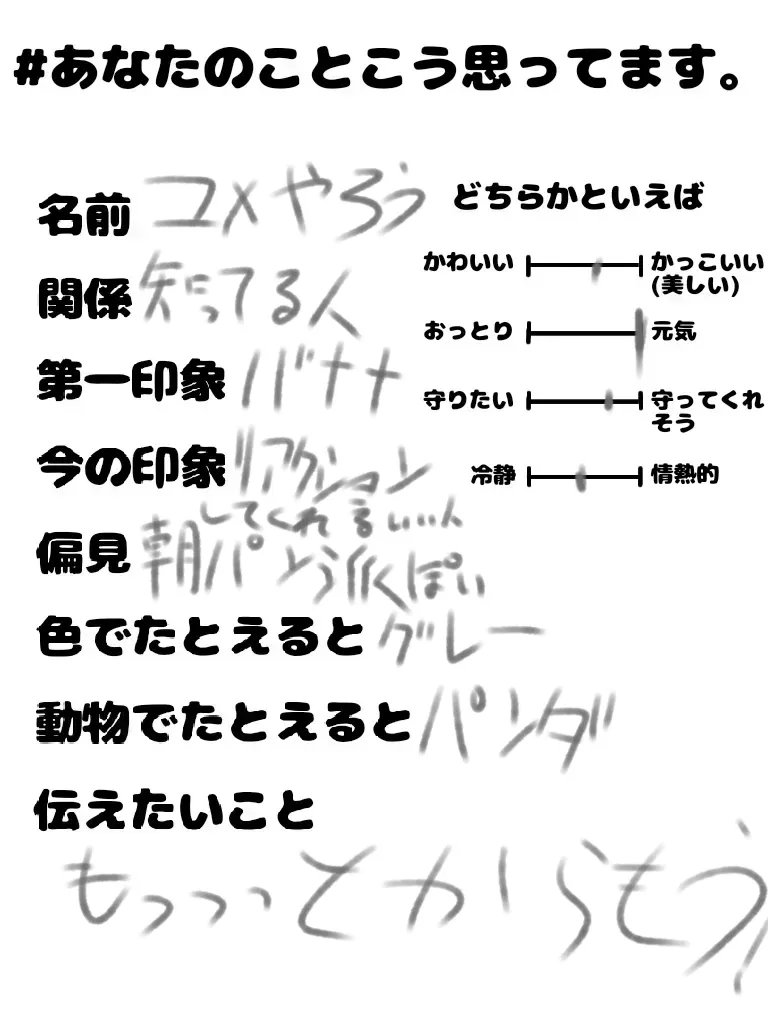 #あなたのことこう思ってます。
名前 コメやろう
関係 知ってる人
第一印象 バナナ
今の印象 リアクション
してくれる いい人
偏見 朝パン派っぽい
色でたとえると グレー
動物でたとえると パンダ
伝えたいこと
もっっっとからもう
どちらかといえば
かわいい かっこいい
(美しい)
おっとり 元気
守りたい 守ってくれ
そう
冷静 情熱的